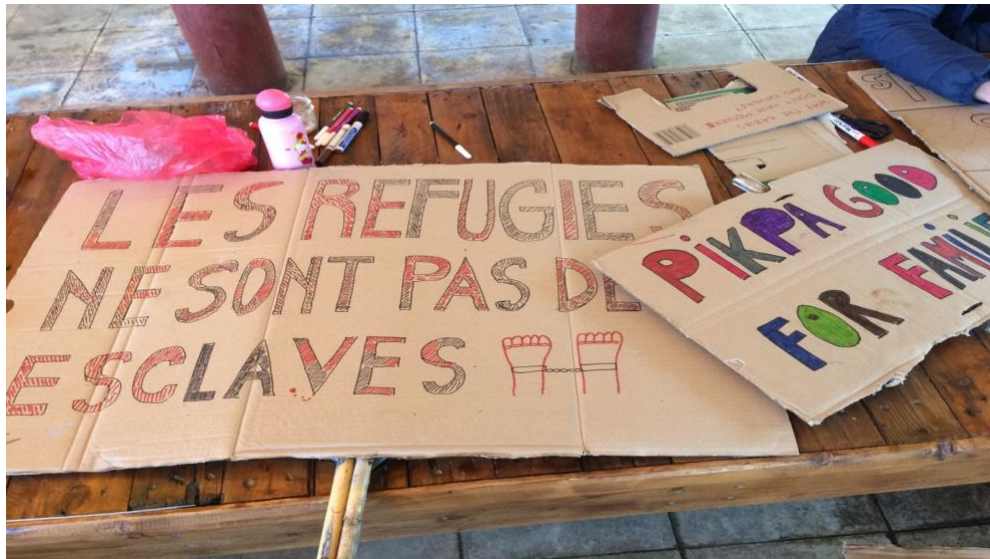 LES REFUGIES
NE SONT PAS DE
ESCLAVES
PIKPA GOOD
FOR FAMILIE